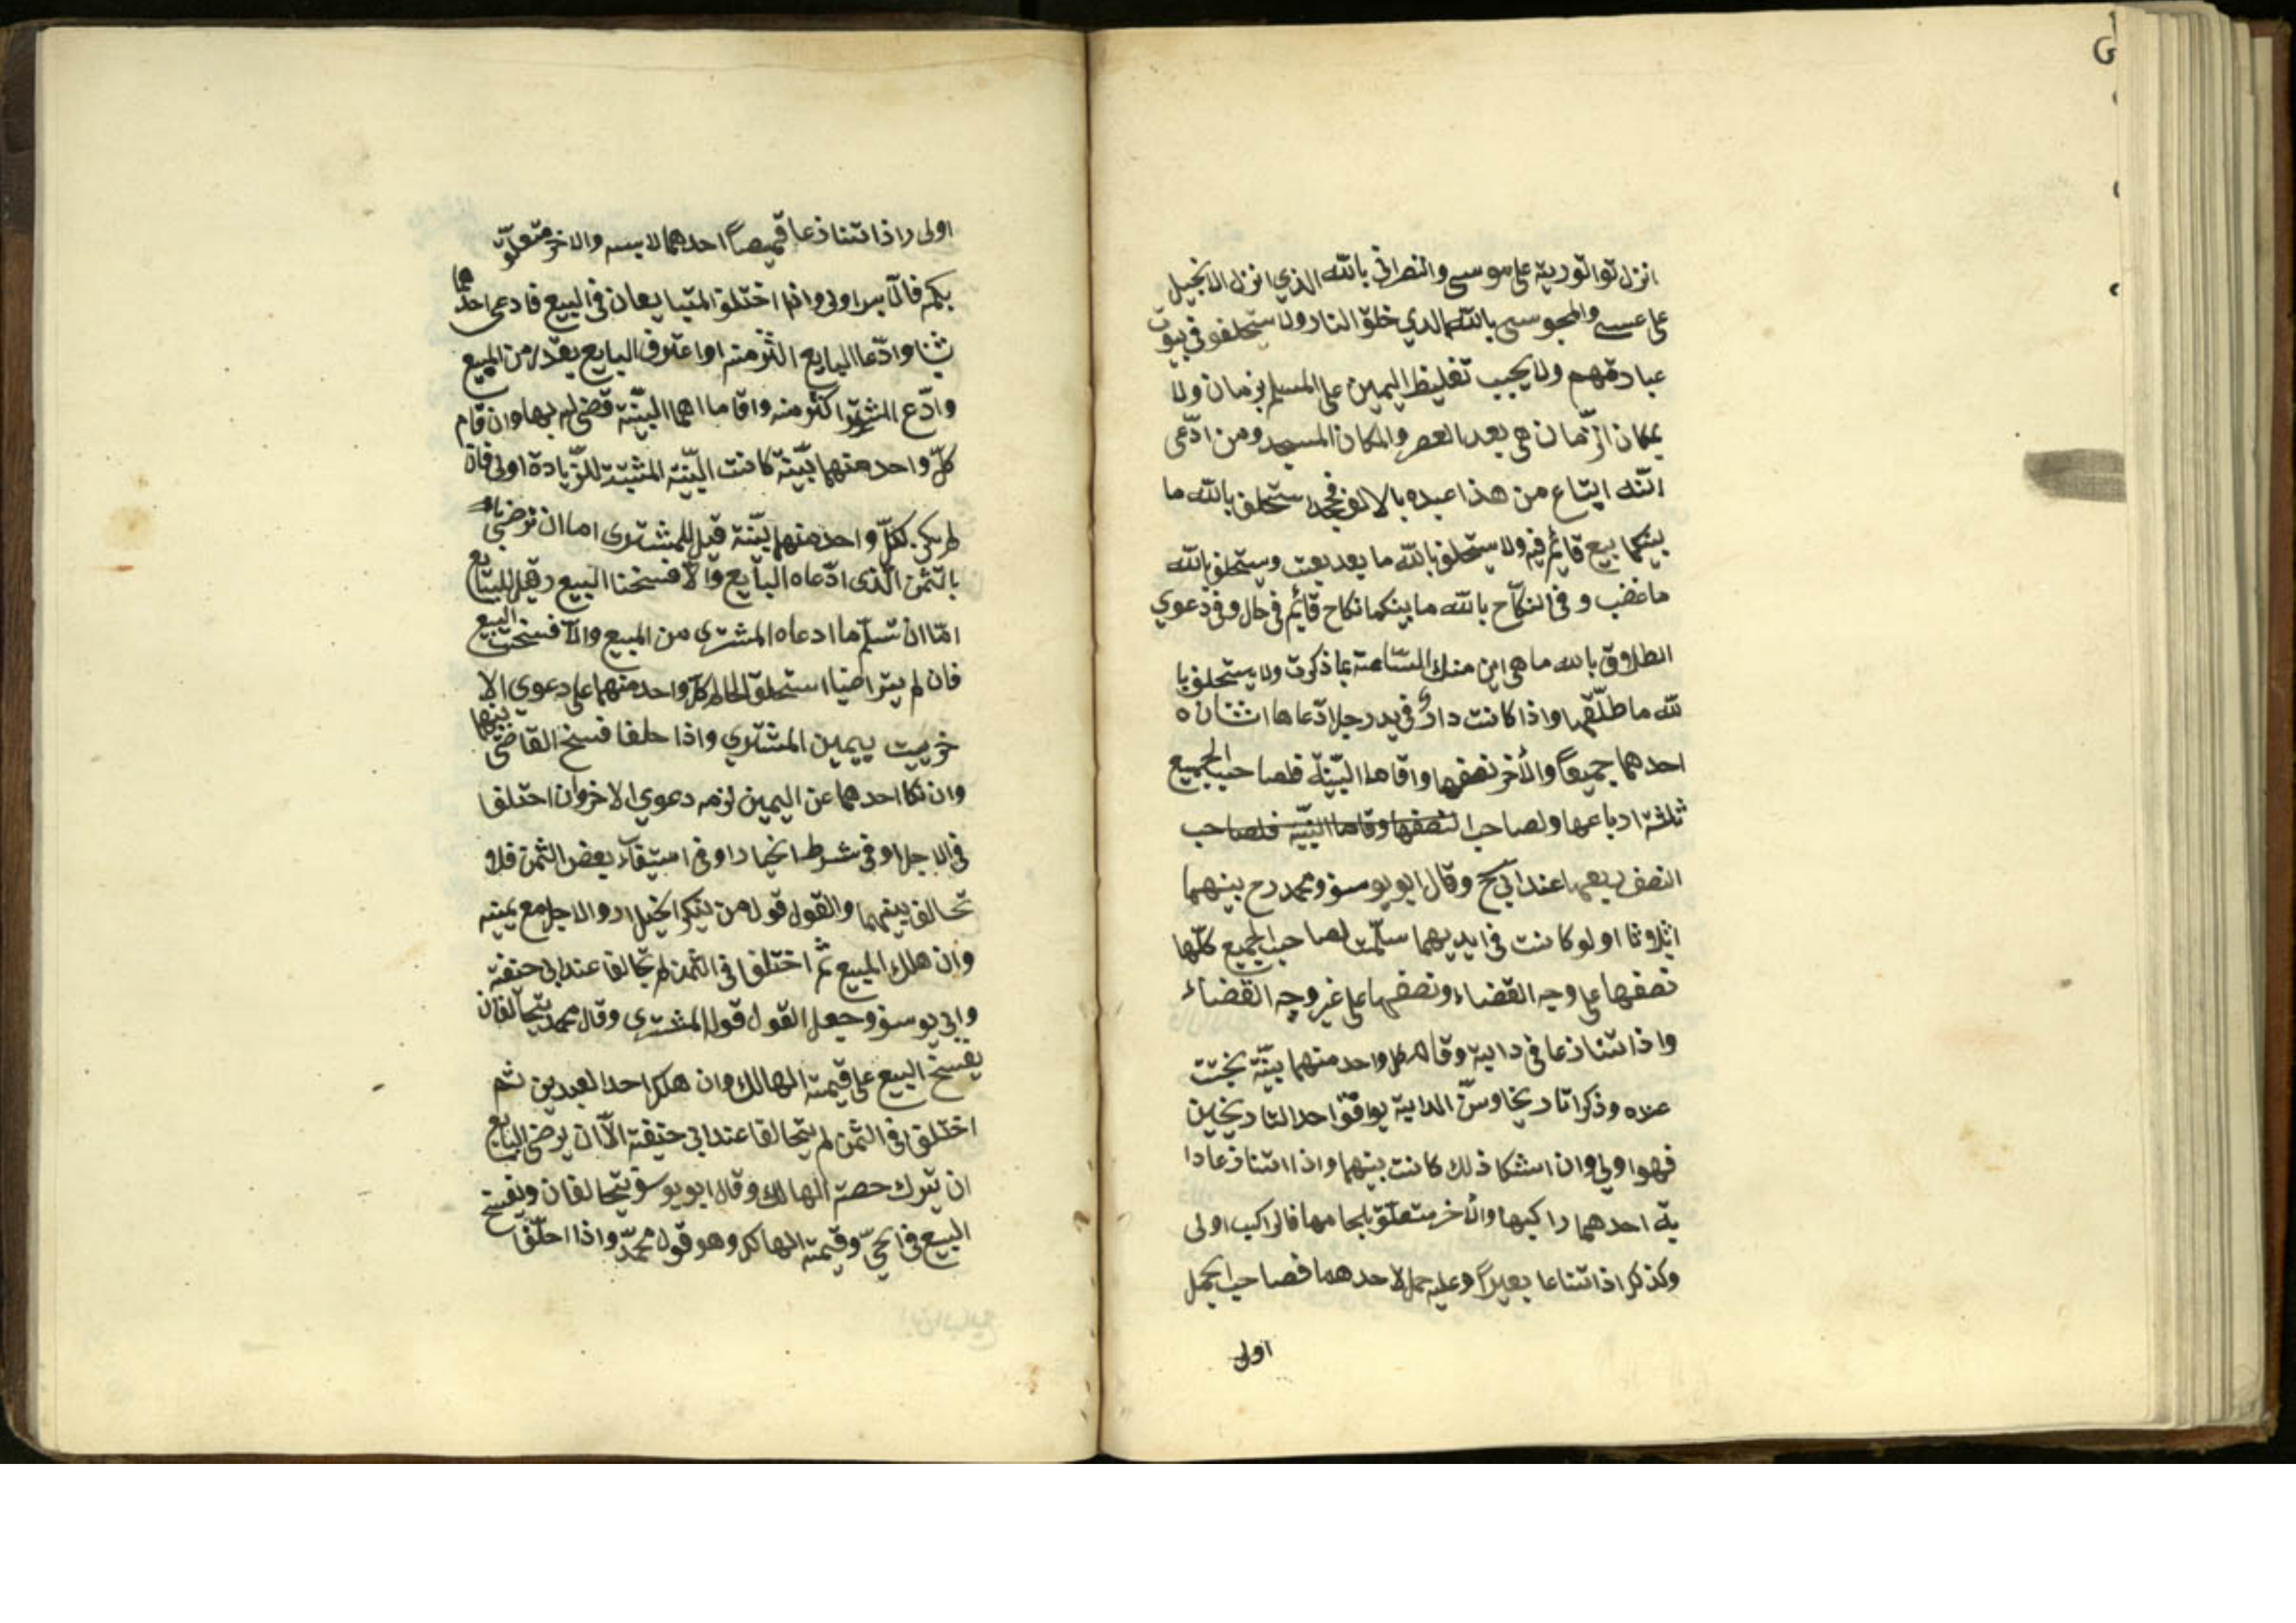 انزل توالتورية على موسى والنصرانى بالله الذي انزل الانجيل
على عيسى والمجوسى بالله الدي خلق النار ولا ستحلفو في بيوت
عبادتهم ولا يجيب تغليظ اليمين على المسلم بزمان ولا
بمكان الزّمان هى بعد العصر والمكان المسجد ومن ادّعى
انّنه ابتاع من هذا عبده بالالف فجحد ستحلف بالله ما
بينكما بيع قائم فيه ولا يستحلف بالله ما بعد بعت وستحلف بالله
ما غضب و فى النكاح بالله ما بينكما نكاح قائم فى حال وفى دعوي
الطلاق بالله ما هى باين منك السّاعة بما ذكرت ولا يستحلف با
لله ما طلّقها واذا كانت دارٌ فى يد رجل ادّعاها اثنان ه
احدهما جميعاً والأخر نصفها واقاما البيّنة فلصاحب الجميع
ثلثة ارباعها ولصاحب النصفها وقاما البيّنة فلصاحب
النصف ربعها عند ابى ح وقال ابو يوسف ومحمد رح بينهما
اثلاثا اولو كانت فى ايديهما سلّمت لصاحب الجميع كلّها
نصفها على وجه القضاء ونصفها على غير وجه القضاء
واذا تنازعا فى دابة وقام كل واحد منهما بيّنة بختت
عنده وذكرا تاريخا وسنّ الدابة يوافق احد التاريخين
فهو اولى وان اشكا ذلك كانت بينهما واذا اتنازعا دا
بة احدهما راكبها والأخر متعلّق بلجامها فالراكب اولى
وكذلك اذا تناعا بعيراً وعليه حمل لاحدهما فصاحب الحمل
اولى
اولى واذا تنازعا قميصاً احدهما لابسه والاخر متعلّق
بكمه فالابس اولى واذا اختلف المتبايعان فى البيع فادعى احدهما
ثمنا وادّعا البايع اكثر منه او اعترف البايع بقدر من المبيع
وادّع المشترى اكثر منه واقاما اهما البيّنة قضى له بها وان قام
كلّ واحد منهما بيّنة كانت البيّنة المثبتة للزّيادة اولى فان
لم يكن لكلّ واحد منهما بيّنة قيل للمشترى اما ان ترضى
بالثمن الّذى ادّعاه البايع والّا فسخنا البيع وقيل للبايع
امّا ان تسلّم ما ادعاه المشترى من المبيع والّا فسخت البيع
فان لم يتراضيا استحلف الحاكم كلّ واحد منهما على دعوي الا
خر يبت بيمين المشتري واذا حلفا فسخ القاضى بينهما
وان نكا احدهما عن اليمين لزمه دعوي الاخر وان اختلفا
فى الاجل او فى شرط الخيار او فى استيفاء بعض الثمن فلا
تحالف بينهما والقول قول من ينكر الخيار والاجل مع يمينه
وان هلك المبيع ثم اختلفا فى الثمن لم تحالفا عند ابى حنفة
وابى يوسف وجعل القول قول المشترى وقال محمد يتحالفان
يفسخ البيع على قيمة الهالك وان هلك احد العبدين ثم
اختلفا فى الثمن لم يتحالفا عند ابى حنيفة الّا ان يرضى البايع
ان يترك حصة الهالك وقال ابو يوسف يتحالفان ويفسخ
البيع فى الحىّ وقيمة الهالك وهو قول محمّد واذا اختلفا